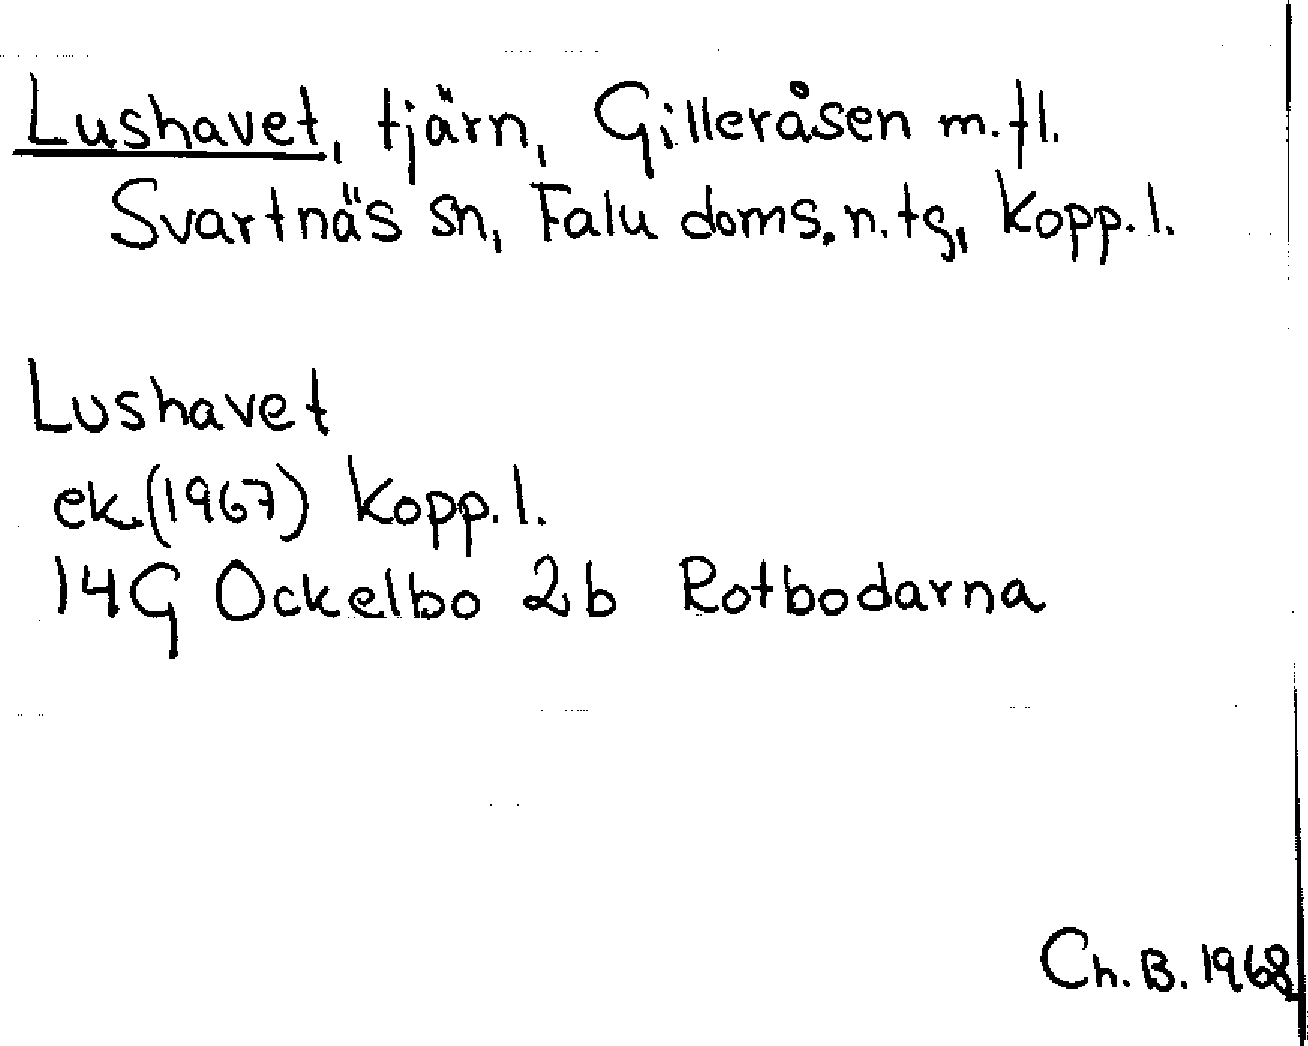 Lushavet, tjärn, Gilleråsen m.fl.
Svartnäs sn, Falu doms.n.tg, Kopp.l.
Lushavet
ek.(1967) Kopp.l.
14G Ockelbo 2b Rotbodarna
Ch.B. 1968